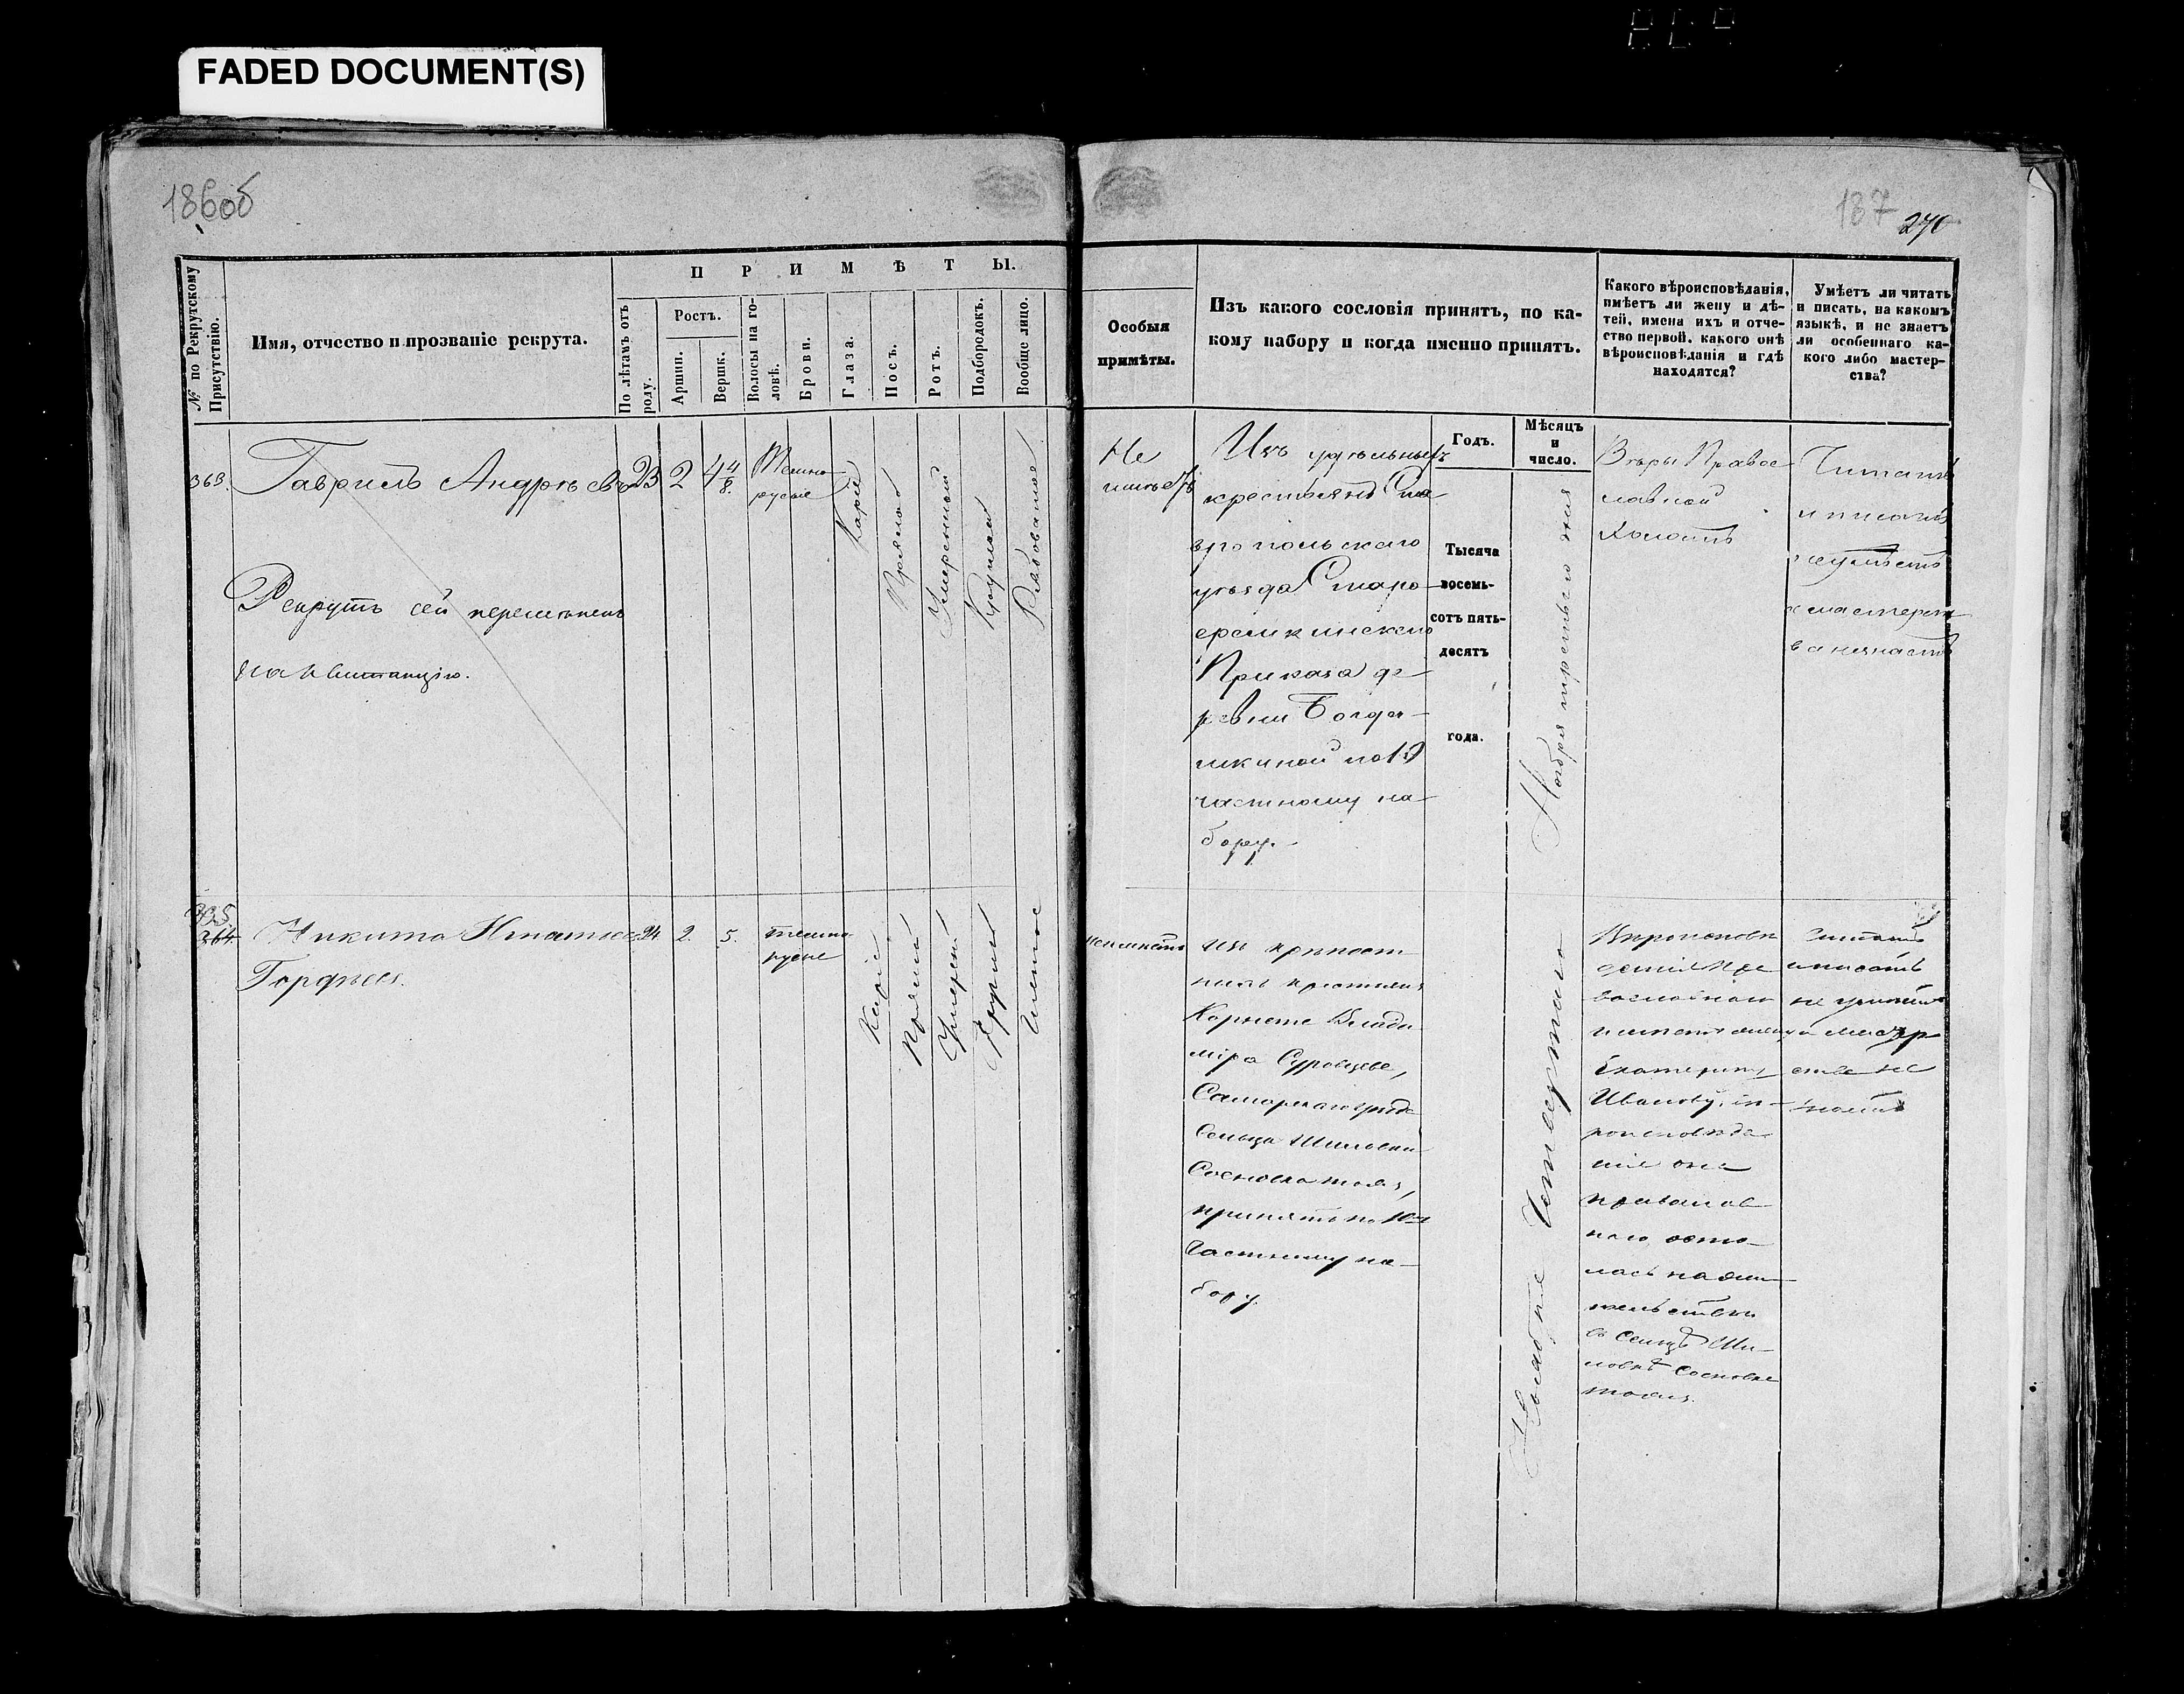 FADED DOCUMENT(S)
186об
187
270
№ по Рекрутскому Присутствію.
Имя, отчество и прозваніе рекрута.
ПРИМѢТЫ.
По лѣтамъ отъ роду.
Ростъ.
Аршин.
Вершк.
Волосы на головѣ.
Брови.
Глаза.
Носъ.
Ротъ.
Подбородокъ.
Вообще лицо.
Особыя
примѣты.
Изъ какого сословія принятъ, по ка-
кому набору и когда именно принятъ.
Какого вѣроисповѣданія,
имѣетъ ли жену и дѣ-
тей, имена ихъ и отче-
ство первой, какого онѣ
вѣроисповѣданія и гдѣ
находятся?
Умѣетъ ли читать
и писать, на какомъ
языкѣ, и не знаетъ
ли особеннаго ка-
кого либо мастер-
ства?
363.
Гаврилъ Андреевъ
23
2
4 4/8.
Темно
русые
Каріе
Прямой
Умеренный
Круглый
Рябоватое
Рекрутъ сей перемѣненъ
на квитанцію.
Не
имѣетъ
Изъ удѣльныхъ
крестьянъ Ста
вропольскаго
уѣзда Старо-
еремкинскаго
Приказа де-
ревни Болда-
шкиной по 10
частному на-
бору.
Годъ.
Тысяча
восемь-
сотъ пять-
десят
года.
Мѣсяцъ
и
число.
Ноября третьяго дня
Вѣры Правос
лавной
Холостъ
Читать
и писать
не умѣетъ
и мастерст
ва не знаетъ
364.
Никита Игнатьевъ
Гордѣевъ.
24
2.
5.
темно
русые
Каріе
Прямой
Умерен
Круглый
Чистое
неимѣетъ
изъ крѣпост
ныхъ крестьянъ
Корнета Влади
міра Суровцева,
Самарскаго уѣзда
Сельца Шиловки
Сосновка тожъ,
принятъ по 10му
Частному на-
бору.
Ноября Четвертаго
Вѣроисповѣ
данія Пра
вославнаго
имѣетъ жену
Екатерину
Иванову, вѣ-
роисповѣда
нія она
православ-
наго, оста-
лась на жи-
тельствѣ
въ Сельцѣ Ши-
ловкѣ Сосновка
тожъ.
Читать
и писать
не умѣетъ
и мастер
ства не
знаетъ